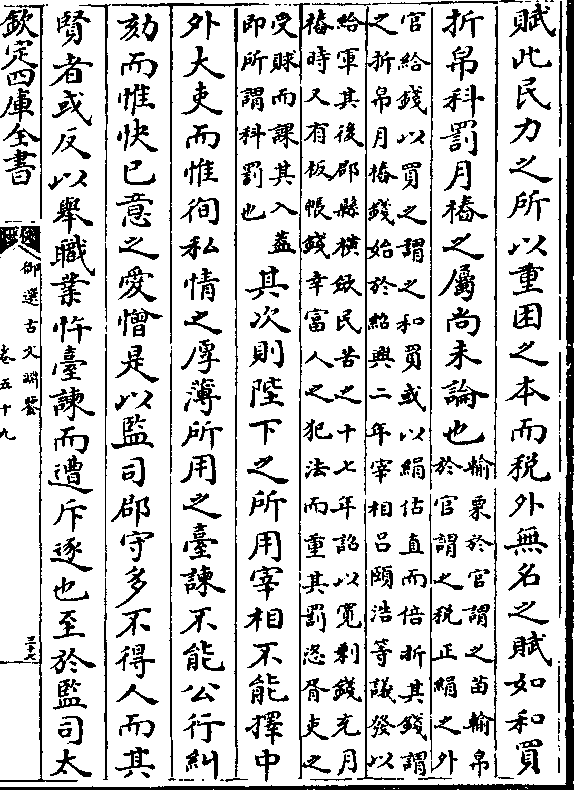 賦此民力之所以重困之本而稅外無名之賦如和買
折帛科罰月樁之屬尚未論也輸粟於官謂之苗輸帛
於官謂之稅正絹之外
官給錢以買之謂之和買或以絹估直而倍折其錢謂
之折帛月樁錢始於紹興二年宰相呂頤浩等議發以
給軍其後郡縣橫歛民苦之十七年詔以寬剩錢充月
樁時又有板帳錢幸富人之犯法而重其罰恣胥吏之
受賕而課其入葢
即所謂科罰也其次則陛下之所用宰相不能擇中
外大吏而惟徇私情之厚薄所用之臺諫不能公行糾
劾而惟快已意之愛憎是以監司郡守多不得人而其
賢者或反以舉職業忤臺諫而遭斥逐也至於監司太
欽定四庫全書
御選古文淵鑒
卷五十九
三十六